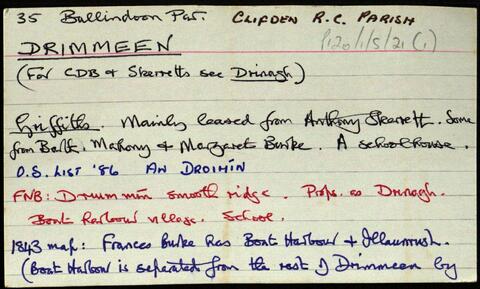 35 Ballindoon Par. CLIFDEN R.C. PARISH
P120/1/5/21 (1)
DRIMMEEN
(For CDB & Skerretts see Drinagh)
Griffiths. Mainly leased from Anthony Skerrett. Some
from Barth. Mahony & Margaret Burke. A schoolhouse.
O.S. LIST '86 AN DROIMÍN
FNB: Drummin smooth ridge. Props. as Drinagh.
Boat Harbour village. School.
1843 map: Frances Burke has Boat Harbour & Illaunrush.
(Boat Harbour is separated from the rest of Drimmeen by